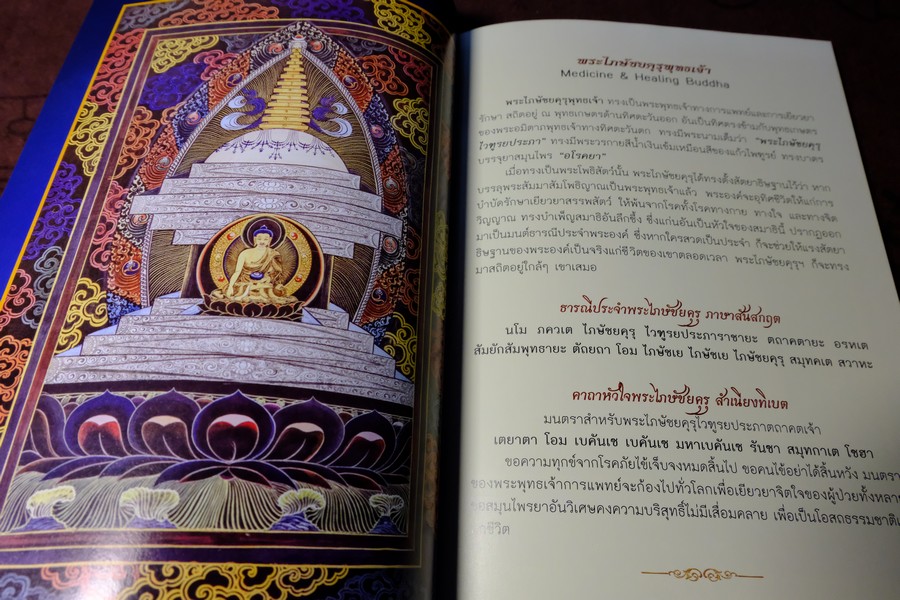 พระไภษัชยคุรุพุทธเจ้า
Medicine & Healing Buddha
พระไภษัชยคุรุพุทธเจ้า ทรงเป็นพระพุทธเจ้าทางการแพทย์และการเยียวยา
รักษา สถิตอยู่ ณ พุทธเกษตรด้านทิศตะวันออก อันเป็นทิศตรงข้ามกับพุทธเกษตร
ของพระอมิตาภพุทธเจ้าทางทิศตะวันตก ทรงมีพระนามเต็มว่า "พระไภษัชยคุรุ
ไวฑูรยประภา" ทรงมีพระวรกายสีน้ำเงินเข้มเหมือนสีของแก้วไพฑูรย์ ทรงบาตร
บรรจุยาสมุนไพร "อโรคยา"
เมื่อทรงเป็นพระโพธิสัตว์นั้น พระไภษัชยคุรุได้ทรงตั้งสัตยาธิษฐานไว้ว่า หาก
บรรลุพระสัมมาสัมโพธิญาณเป็นพระพุทธเจ้าแล้ว พระองค์จะอุทิศชีวิตให้แก่การ
บำบัดรักษาเยียวยาสรรพสัตว์ ให้พ้นจากโรคทั้งโรคทางกาย ทางใจ และทางจิต
วิญญาณ ทรงบำเพ็ญสมาธิอันลึกซึ้ง ซึ่งแก่นอันเป็นหัวใจของสมาธินี้ ปรากฏออก
มาเป็นมนต์ธารณีประจำพระองค์ ซึ่งหากใครสวดเป็นประจำ ก็จะช่วยให้แรงสัตยา
ธิษฐานของพระองค์เป็นจริงแก่ชีวิตของเขาตลอดเวลา พระไภษัชยคุรุฯ ก็จะทรง
มาสถิตอยู่ใกล้ๆ เขาเสมอ
ธารณีประจำพระไภษัชยคุรุ ภาษาสันสกฤต
นโม ภควเต ไภษัชยคุรุ ไวฑูรยประภาราชายะ ตถาคตายะ อรหเต
สัมยักสัมพุทธายะ ตัถยถา โอม ไภษัชเย ไภษัชเย ไภษัชยคุรุ สมุทคเต สวาหะ
คาถาหัวใจพระไภษัชยคุรุ สำเนียงทิเบต
มนตราสำหรับพระไภษัชยคุรุไวฑูรยประภาตถาคตเจ้า
เตยาตา โอม เบคันเซ เบคันเซ มหาเบคันเซ รันซา สมุทกาเต โซฮา
ขอความทุกข์จากโรคภัยไข้เจ็บจงหมดสิ้นไป ขอคนไข้อย่าได้สิ้นหวัง มนตรา
ของพระพุทธเจ้าการแพทย์จะก้องไปทั่วโลกเพื่อเยียวยาจิตใจของผู้ป่วยทั้งหลาย
ขอสมุนไพรยาอันวิเศษคงความบริสุทธิ์ไม่มีเสื่อมคลาย เพื่อเป็นโอสถธรรมชาติ
ชีวิต